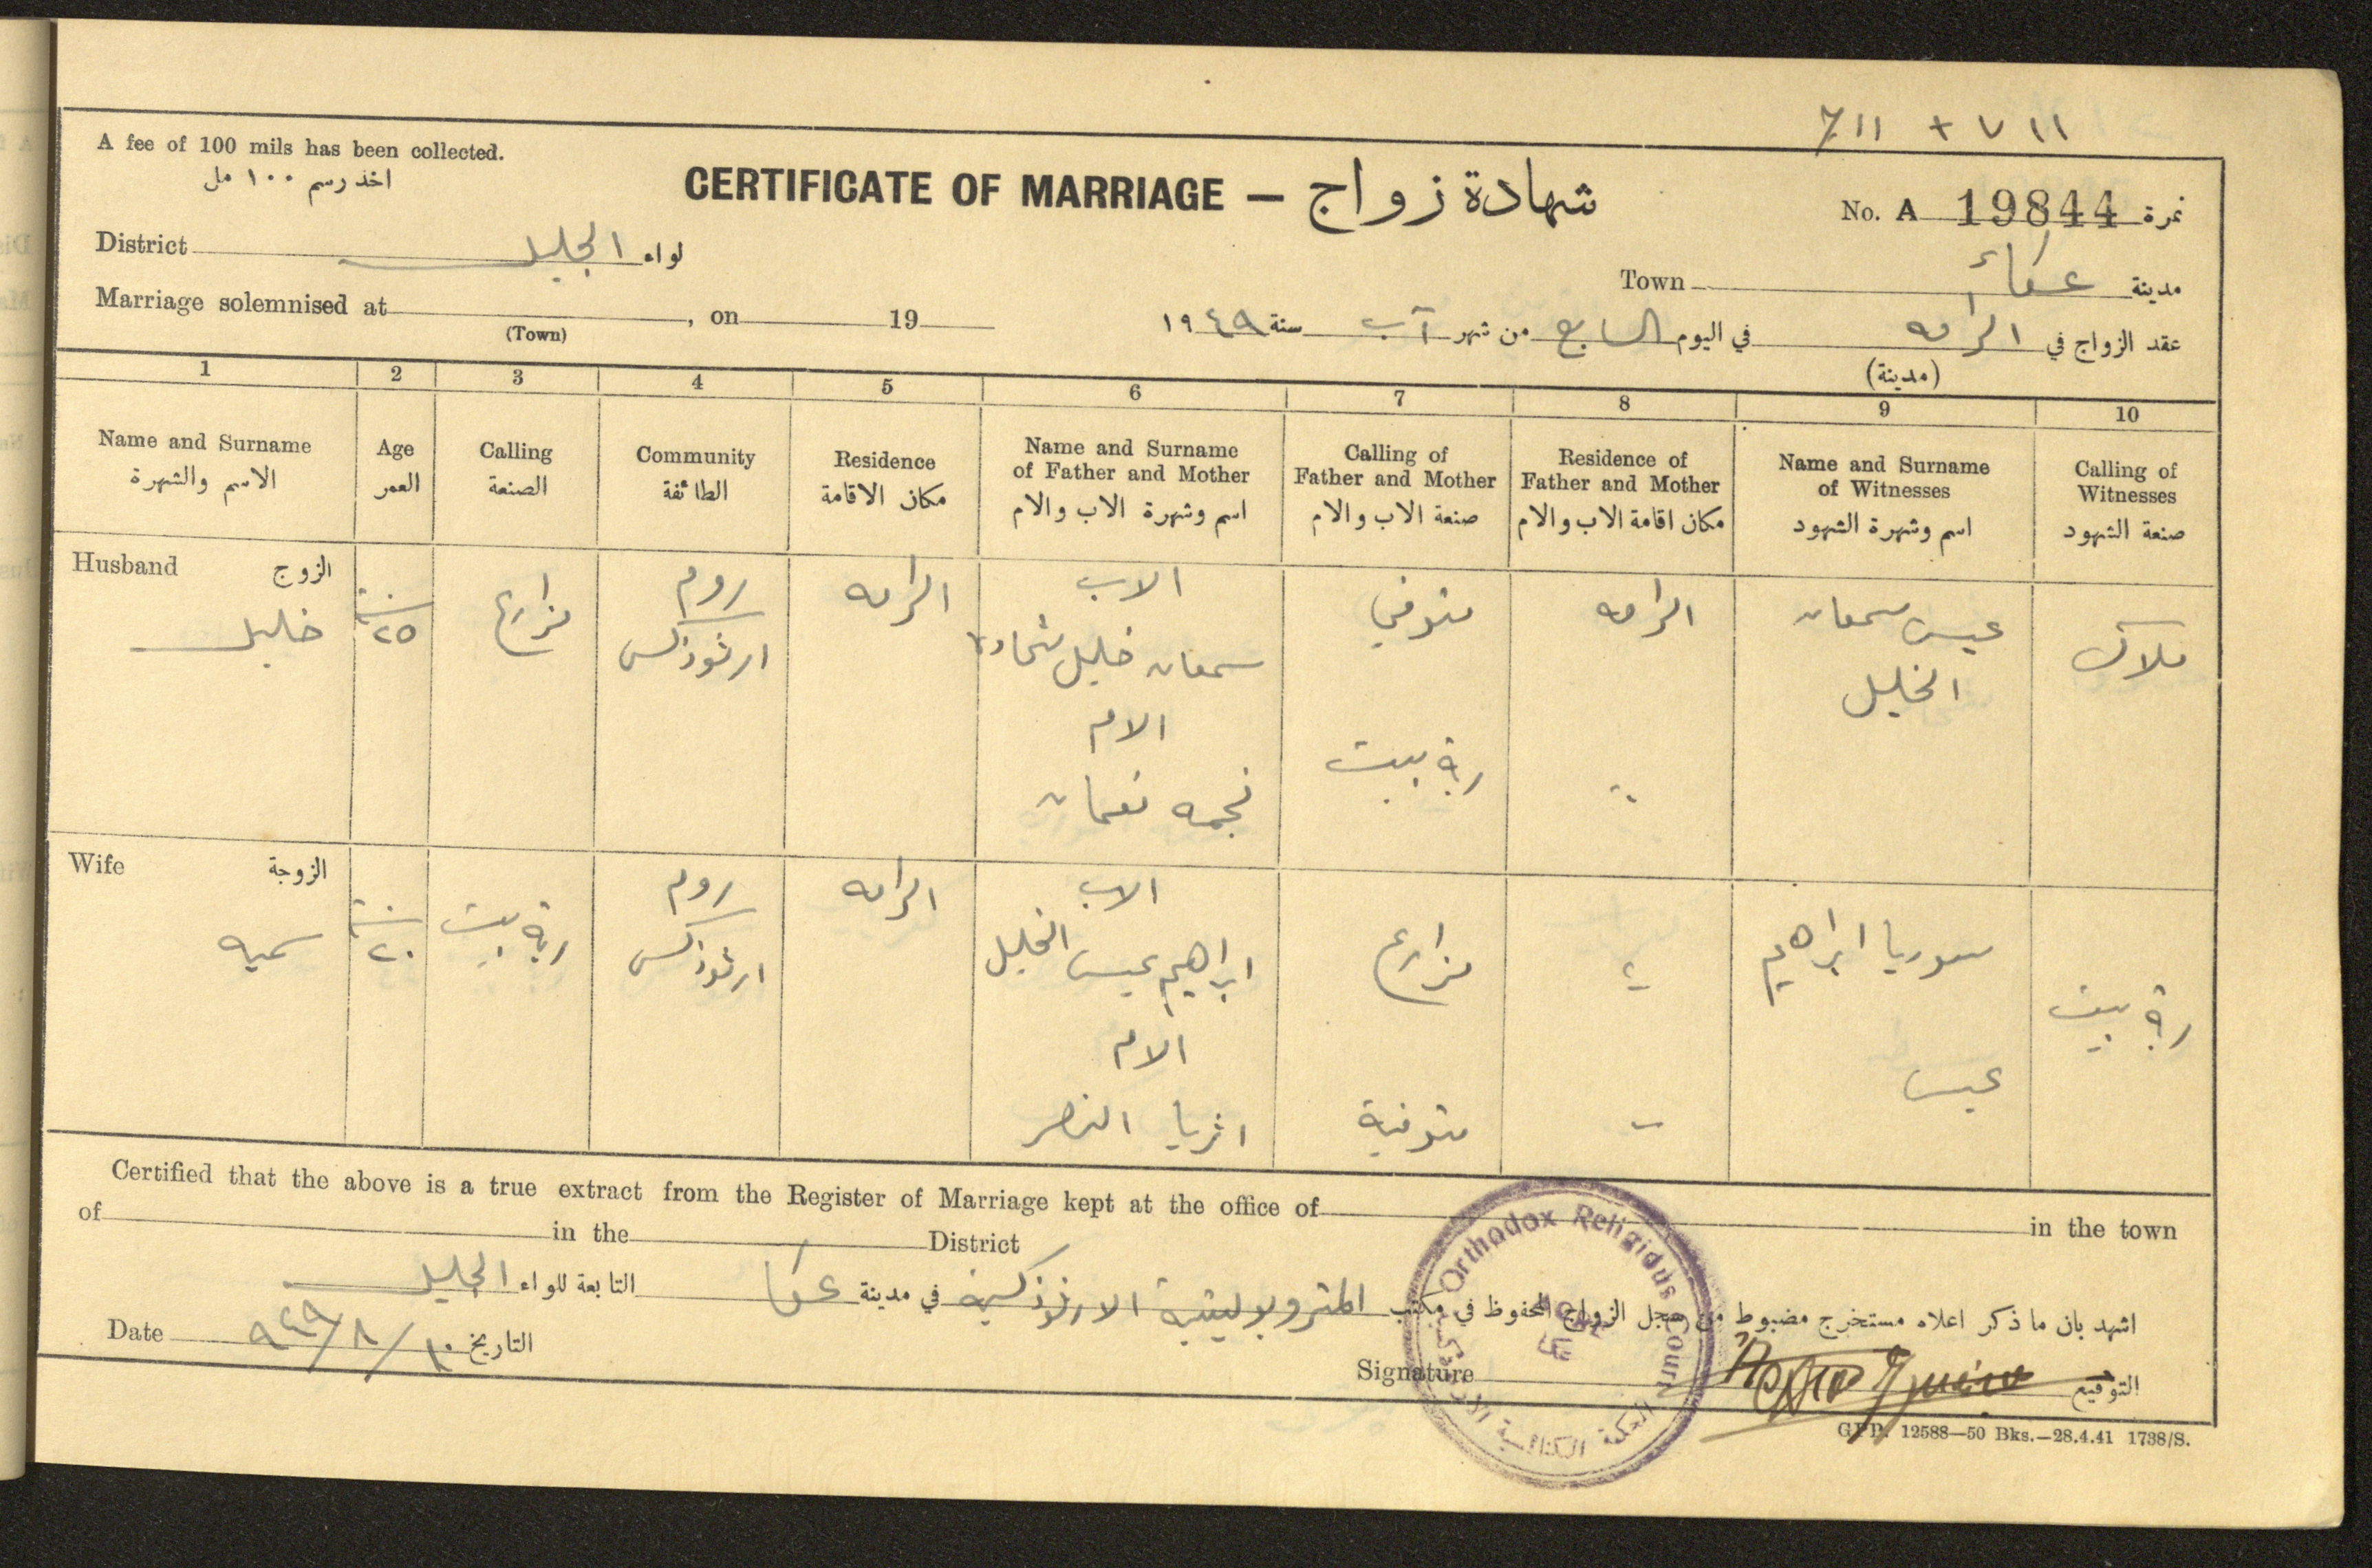 711 + ٧ ١١
A fee of 100 mils has been collected.
اخذ رسم ١٠٠ مل
CERTIFICATE OF MARRIAGE — شهادة زواج
No. A 19844 نمرة
District لواء الجليل
Town مدينة عكا
Marriage solemnised at , on 19
(Town)
عقد الزواج في الرامه في اليوم السابع من شهر آب سنة ١٩٤٩
(مدينة)
1 2 3 4 5 6 7 8 9 10
Name and Surname
الاسم والشهرة
Age
العمر
Calling
الصنعة
Community
الطائفة
Residence
مكان الاقامة
Name and Surname
of Father and Mother
اسم وشهرة الاب والام
Calling of
Father and Mother
صنعة الاب والام
Residence of
Father and Mother
مكان اقامة الاب والام
Name and Surname
of Witnesses
اسم وشهرة الشهود
Calling of
Witnesses
صنعة الشهود
Husband الزوج
خليل
سنة
٢٥
مزارع
روم
ارثوذكس
الرامه
الاب
سمعان خليل شحاده
الام
نجمه نعمان
متوفي
ربة بيت
الرامه
"
عيسى سمعان
الخليل
ملاك
Wife الزوجة
سميه
سنة
٢٠
ربة بيت
روم
ارثوذكس
الرامه
الاب
ابراهيم عيسى الخليل
الام
اثريا
مزارع
متوفية
"
"
سوريا ابراهيم
عيسى
ربة بيت
Certified that the above is a true extract from the Register of Marriage kept at the office of in the town
of in the District
اشهد بان ما ذكر اعلاه مستخرج مضبوط من سجل الزواج المحفوظ في مكتب المتروبوليتية الارثوذكسية في مدينة عكا التابعة للواء الجليل
Date التاريخ ١٠/٨/٩٤٩
Signature التوقيع
Orthodox Religious Court
عكا
المحكمة الكنائسية الارثوذكسية
G.P.P. 12588—50 Bks.—28.4.41 1738/S.